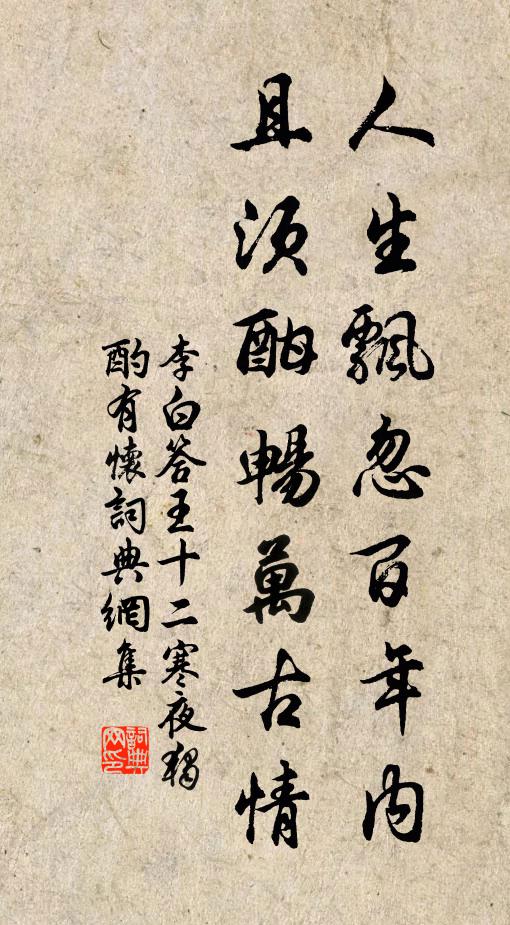 人生飄忽百年內
且須酣暢萬古情
李白答王十二寒夜獨
酌有懷詞典網集
詞典
网印